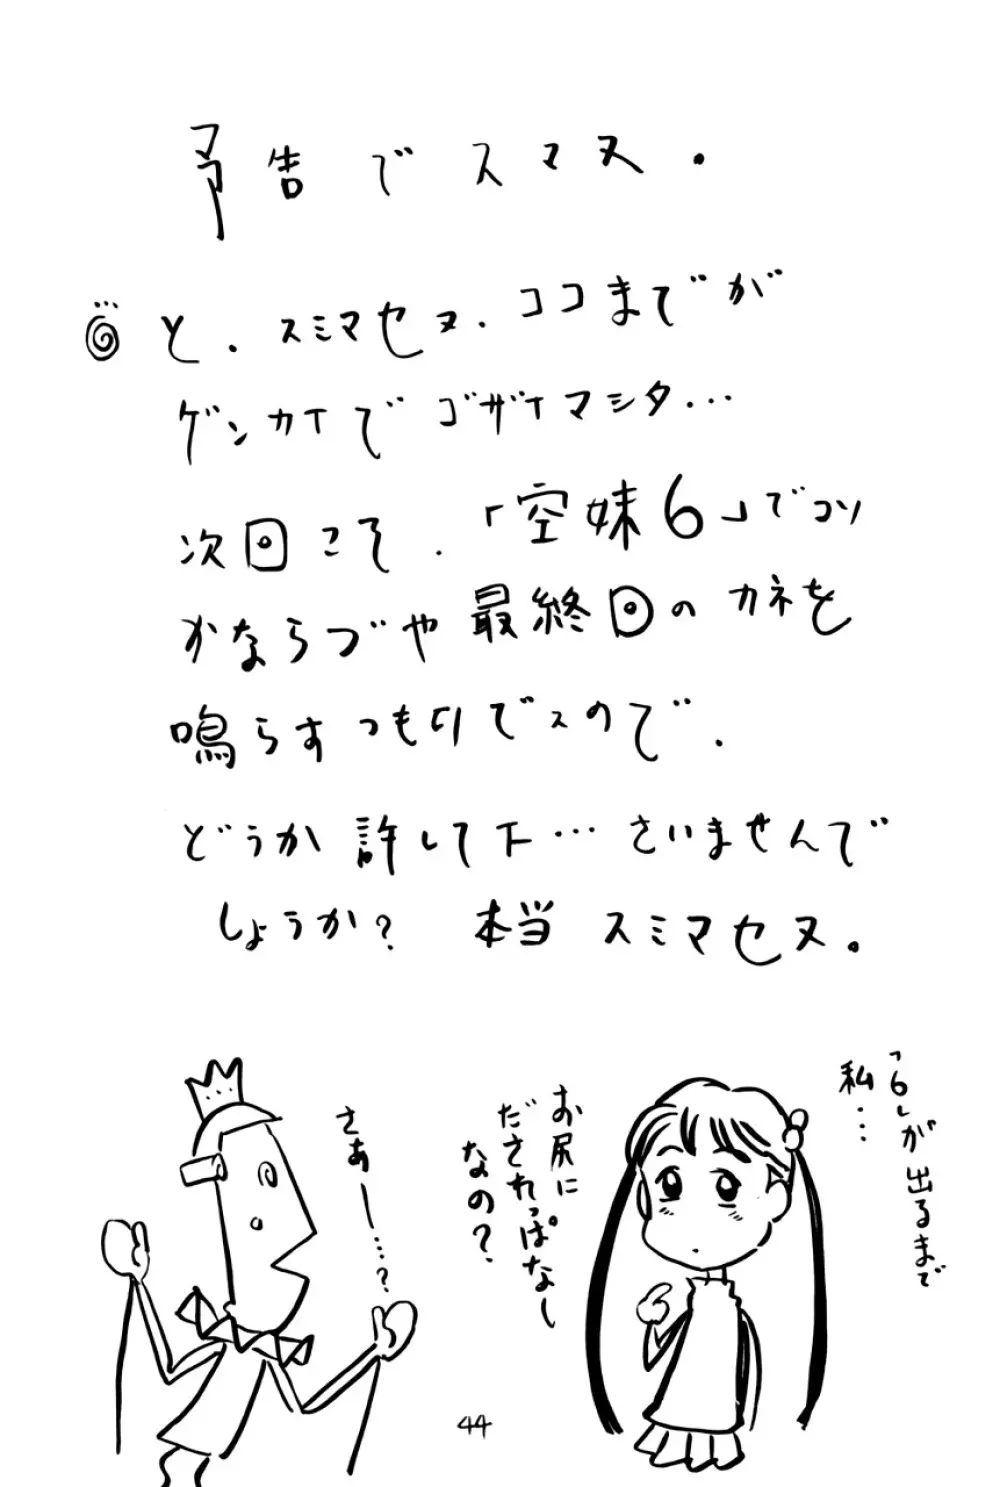 予告でスマヌ.
と.スミマセヌ.ココまでが
ゲンカイでゴザイマシタ…
次回こそ.「空妹6」でコソ
かならづや最終回のカネを
鳴らすつもりでスので.
どうか許して下…さいませんで
しょうか? 本当 スミマセヌ。
さあー…?
44